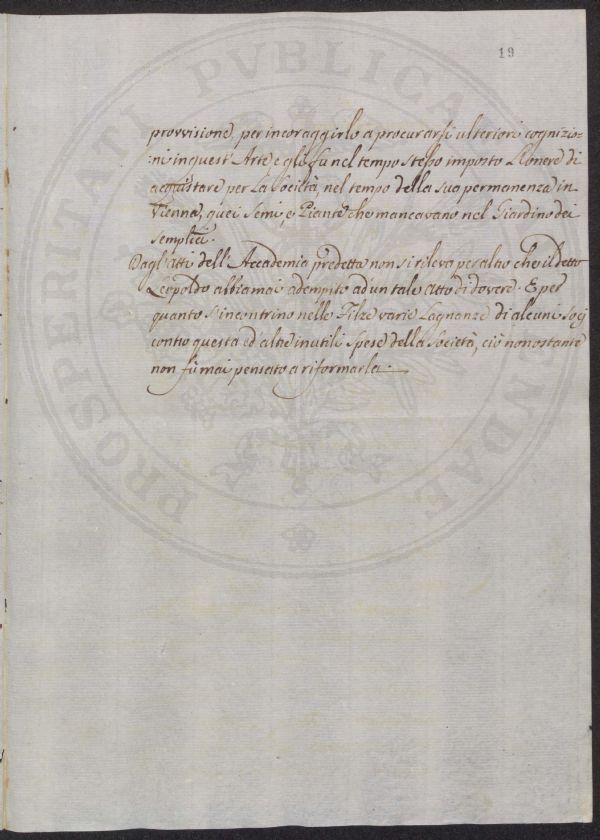 19
provvisione, per incoraggirlo a procurarsi ulteriori cognizio=
:ni in quest'Arte, e gli fu nel tempo stesso imposto L'onere di
acquistare per La Società, nel tempo della sua permanenza in
Vienna, quei Semi, e Piante che mancavano nel Giardino dei
Semplici.
Dagl'atti dell'Accademia predetta non si rileva per altro che il detto
Leopoldo abbia mai adempito ad un tale atto di dovere. E per
quanto s'incontrino nelle Filze varie Lagnanze di alcuni Socj
contro questa ed altre inutili Spese della Società, ciò nonostante
non fù mai pensato a riformarla.
PROSPERITATI PVBLICAE AVGENDAE